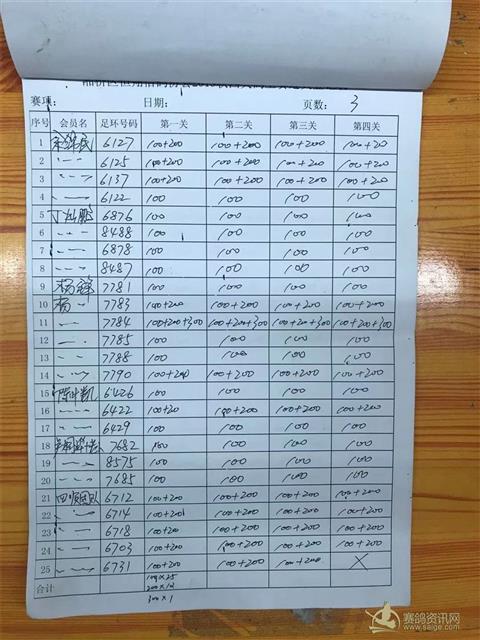 赛项： 日期： 页数： 3
序号 会员名 足环号码 第一关 第二关 第三关 第四关
1 6127 100+200 100+200 100+200 100+20
2 〃 6125 100+200 100+200 100+200 100+20
3 〃 6137 100+200 100+200 100+200 100+20
4 〃 6122 100 100 100 100
5 6876 100 100 100 100
6 〃 8488 100 100 100 100
7 〃 6878 100 100 100 100
8 〃 8487 100 100 100 100
9 杨锋 7781 100 100 100 100
10 杨〃 7783 100+200 100+200 100+200 100+200
11 〃 7784 100+200+300 100+200+300 100+20+300 100+200+300
12 〃 7785 100 100 100 100
13 〃 7788 100 100 100 100
14 〃 7790 100+200 100+200 100+200 100+200
15 6426 100 100 100 100
16 〃 6422 100+20 100+200 100+200 100+200
17 〃 6429 100 100 100 100
18 7682 100 100 100 100
19 〃 8575 100 100 100 100
20 〃 7685 100 100 100 100
21 6712 100+200 100+200 100+200 100+200
22 〃 6714 100+200 100+200 100+200 100+200
23 〃 6718 100+200 100+200 100+200 100+200
24 〃 6703 100+200 100+200 100+200 100+200
25 〃 6731 100+200 100+200 100+200 ×
合计 100×25
200×12
300×1
赛鸽资讯网
www.saige.com